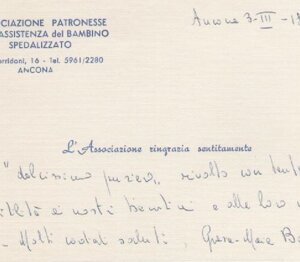 CIAZIONE PATRONESSE
ASSISTENZA del BAMBINO
SPEDALIZZATO
orridoni, 16 - Tel. 5961/2280
ANCONA
Ancona 3-III-19
L'Associazione ringrazia sentitamente
" dolcissimo pensiero, rivolto con tant
ai nostri bambini e alle loro
Molti cordiali saluti,